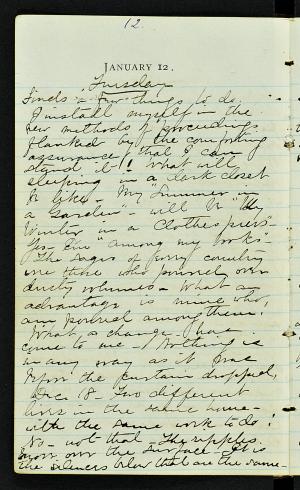 12.
JANUARY 12.
Tuesday
Finds a few things to do.
I install myself in the
new methods of proceedings
flanked by the comforting
assurance, that I can
stand it! What will
sleeping in a dark closet
be like - My "Summer in
a Garden" - will be "My
Winter in a Clothespress" -
among my books -
The sages of every country
are those who pored over
dusty volumes - What an
advantage is mine who,
am among them!
What a change - has
come to me - Nothing is
in any way as it was
before the curtain dropped,
Dec 18 - Two different
lives in the same house -
with the same work to do!
No - not that - The ripples.
over the surface - It is
the silences below that are the same -